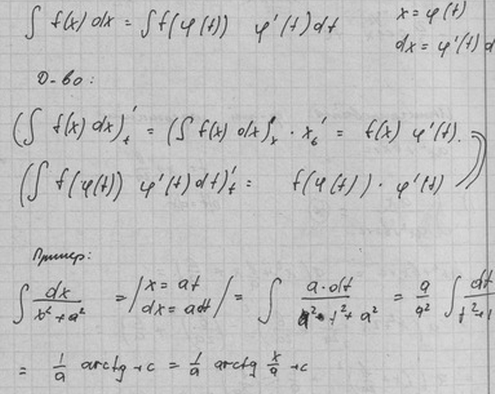 ∫ f(x) dx = ∫ f(φ(t)) φ'(t) dt x = φ(t)
dx = φ'(t) d
Д-во:
(∫ f(x) dx)'ₜ = (∫ f(x) dx)'ₓ · x'ₜ = f(x) φ'(t).
(∫ f(φ(t)) φ'(t) dt)'ₜ = f(φ(t)) · φ'(t)
Пример:
∫ dx/(x² + a²) = |x = at dx = adt| = ∫ a·dt/(a²·t² + a²) = a/a² ∫ dt/(t²+1
= 1/a arctg + c = 1/a arctg x/a + c